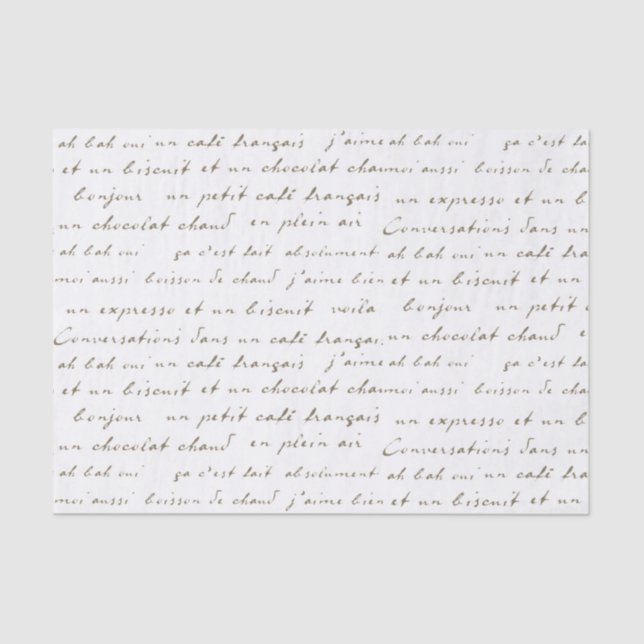 ah bah oui un café français j'aime ah bah oui ça c'est fai
et un biscuit et un chocolat chau moi aussi boisson de cha
bonjour un petit café français un expresso et un b
un chocolat chaud en plein air Conversations dans un
ah bah oui ça c'est fait absolument ah bah oui un café fra
moi aussi boisson de chaud j'aime bien et un biscuit et un
un expresso et un biscuit voila bonjour un petit c
Conversations dans un café françai un chocolat chaud e
ah bah oui un café français j'aime ah bah oui ça c'est fai
et un biscuit et un chocolat chau moi aussi boisson de cha
bonjour un petit café français un expresso et un b
un chocolat chaud en plein air Conversations dans un
ah bah oui ça c'est fait absolument ah bah oui un café fra
moi aussi boisson de chaud j'aime bien et un biscuit et un